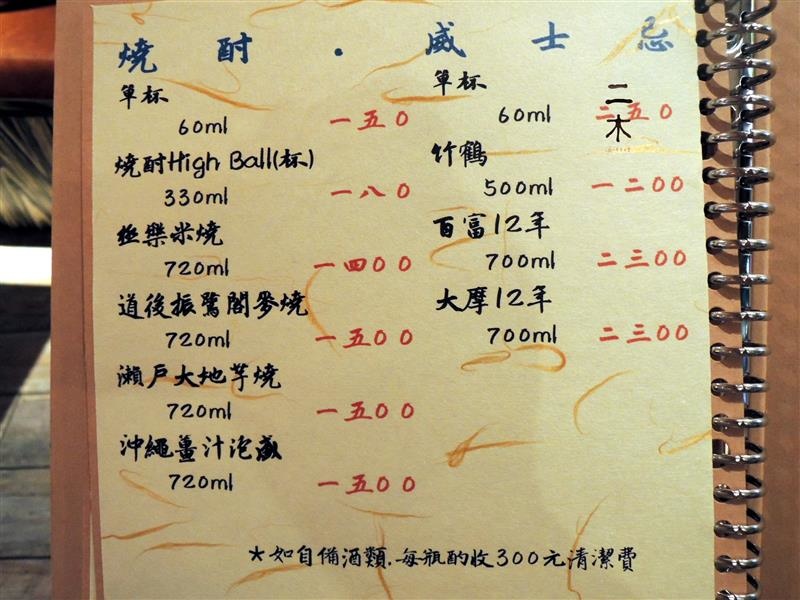 燒酎・威士忌
單杯
60ml 一五0
燒酎High Ball(杯)
330ml 一八0
極樂米燒
720ml 一四00
道後振鷺閣麥燒
720ml 一五00
瀨戶大地芋燒
720ml 一五00
沖繩薑汁泡盛
720ml 一五00
單杯
60ml 二五0
二木
竹鶴
500ml 一二00
百富12年
700ml 二三00
大摩12年
700ml 二三00
*如自備酒類,每瓶酌收300元清潔費